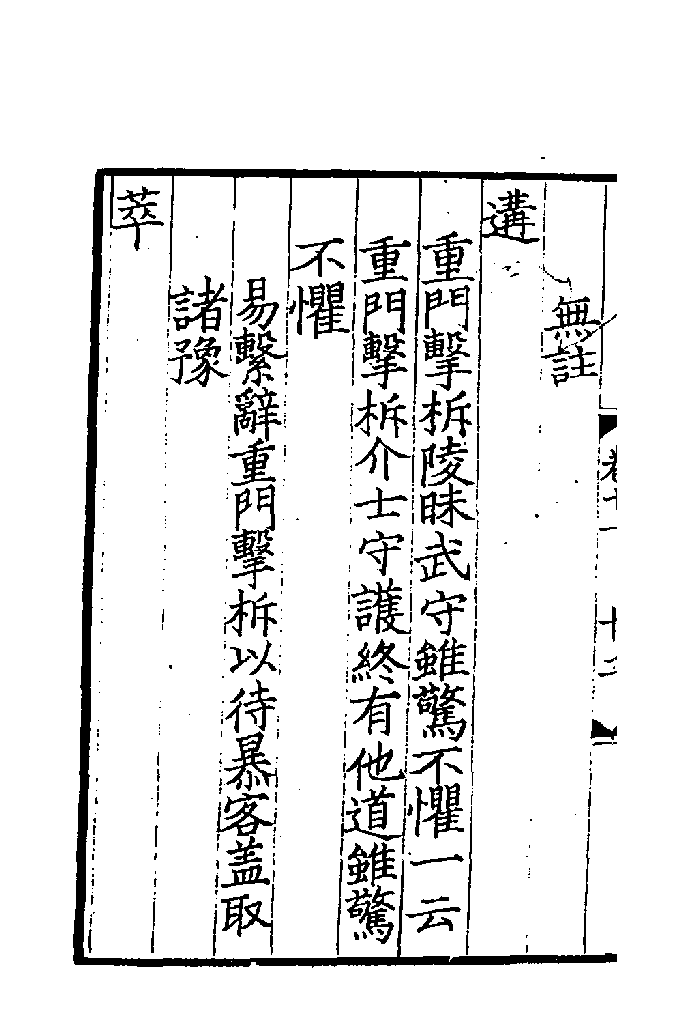 卷十一 十二
無註
遘
重門擊柝陵眛武守雖驚不懼一云
重門擊柝介士守護終有他道雖驚
不懼
易繫辭重門擊柝以待暴客盖取
諸豫
萃